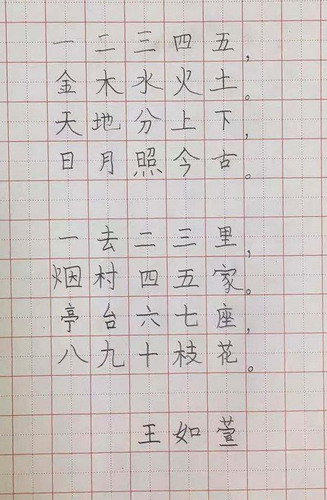 一二三四五，
金木水火土。
天地分上下，
日月照今古。
一去二三里，
烟村四五家。
亭台六七座，
八九十枝花。
王如萱